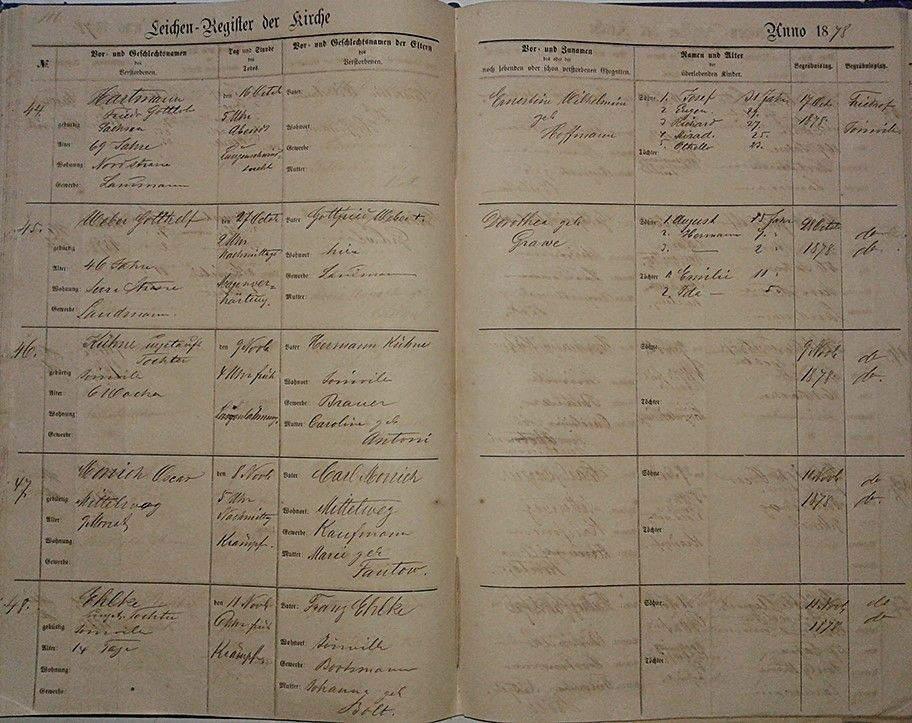 Leichen-Register der Kirche
Anno 1878
№
Vor- und Geschlechtsnamen
des
Verstorbenen.
Tag und Stunde
des
Todes.
Vor- und Geschlechtsnamen der Eltern
des
Verstorbenen.
Vor- und Zunamen
des oder der
noch lebenden oder schon verstorbenen Ehegatten.
Namen und Alter
der
überlebenden Kinder.
Begräbnistag.
Begräbnisplatz.
44.
Hartmann
Friedr Gottlob
gebürtig Sachsen
Alter: 69 Jahre
Wohnung: Nordstrasse
Gewerbe: Landmann
den 16 Octob
5 Uhr
Abends
Vater:
Wohnort:
Gewerbe:
Mutter:
Ernestine Wilhelmine
geb
Hoffmann
Söhne 1. Josef 31 Jahr
2. Eugen 29
3. Richard 27
4. 25.
Töchter: 5. Othilie 23.
17 Octo
1878.
Friedhof
Joinville
45.
Weber Gotthelf
gebürtig
Alter: 46 Jahre
Wohnung:
Gewerbe: Landmann.
den 27 Octob
2 Uhr
Nachmittags
Vater: Gottfried Weber †.
Wohnort: hier
Gewerbe: Landmann
Mutter:
Dorothea geb
Grawe
Söhne 1. August 15 Jahr
2. Hermann 7 "
3. 2 "
Töchter 1. Emilie 11 "
2. Ida — 5.
28 Octob
1878.
do
do.
46.
Kühne ungetauft
Tochter
gebürtig Joinville
Alter: 6 Wochen
Wohnung:
Gewerbe:
den 9 Novb
4 Uhr früh
Vater: Hermann Kühne
Wohnort: Joinville
Gewerbe: Brauer
Mutter: Caroline geb
Antoni
Söhne
Töchter:
9 Novb
1878.
do
do.
47.
Monich Oscar
gebürtig: Mittelweg
Alter: 7 Monate
Wohnung:
Gewerbe:
den 8 Novb
5 Uhr
Nachmittag
Krämpf.
Vater Carl Monich
Wohnort: Mittelweg
Gewerbe: Kaufmann
Mutter: Marie geb
Tantow.
Söhne
Töchter
11 Novb
1878.
do
do.
48.
Ehlke
ungt. Tochter
gebürtig Joinville
Alter: 14 Tage
Wohnung:
Gewerbe:
den 11 Novb
6 Uhr früh
Krämpfe
Vater: Franz Ehlke
Wohnort: Joinville
Gewerbe: Bootsmann
Mutter: Johanna geb
Bolt.
Söhne:
Töchter:
11 Novb
1878
do
do